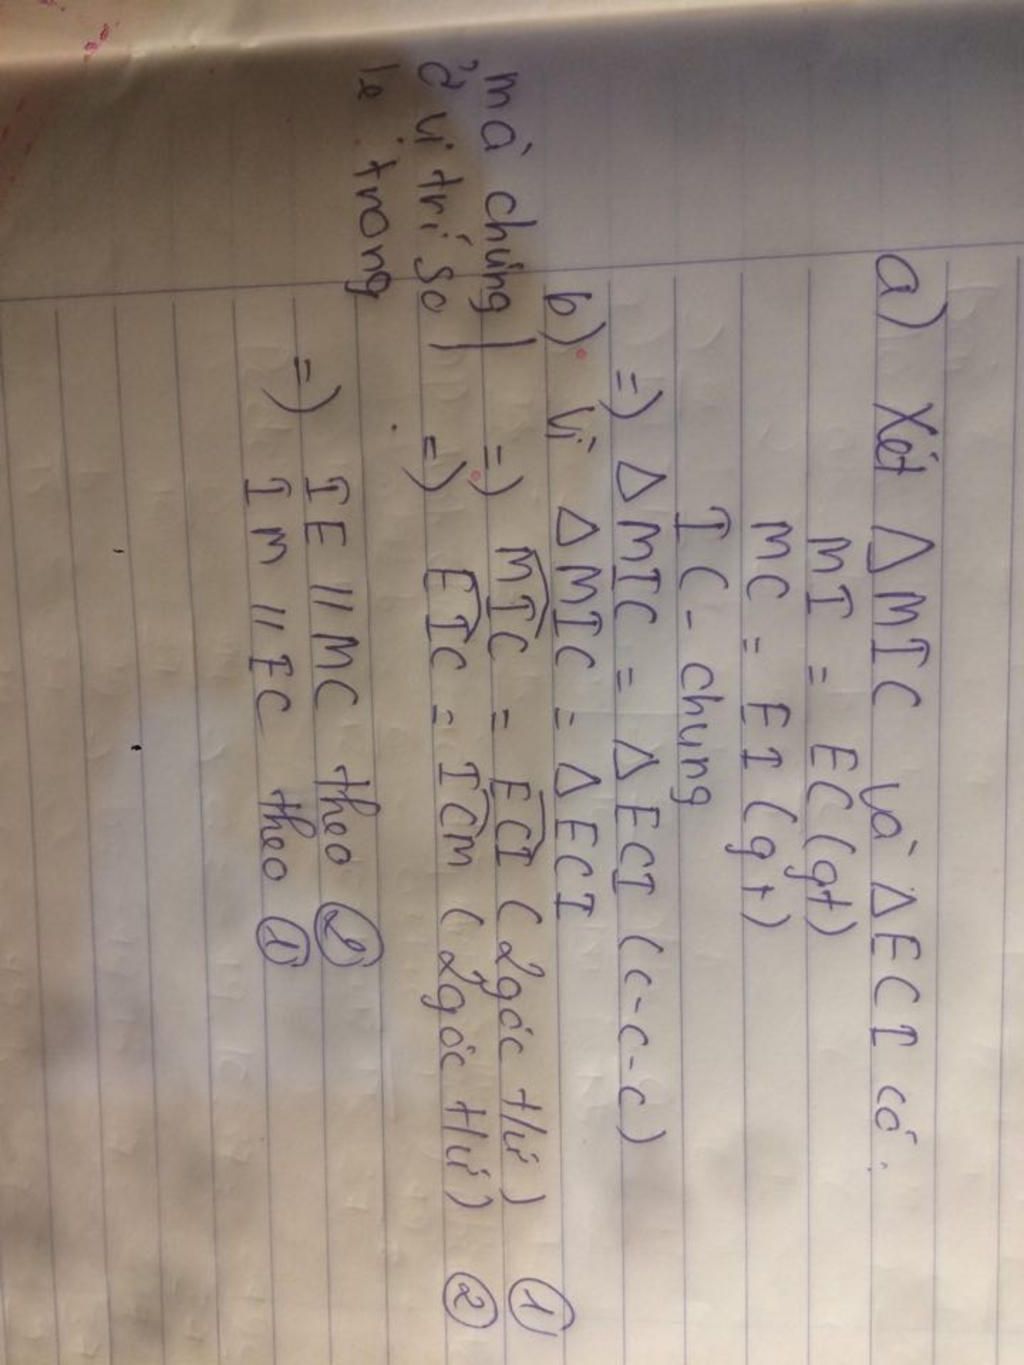 a) Xét Δ MIC và Δ ECI có.
MI = EC (gt)
MC = EI (gt)
IC - chung
=) Δ MIC = Δ ECI (c-c-c)
b) Vì Δ MIC = Δ ECI
=) MIC = ECI (2góc t/ư) ①
=) EIC = ICM (2góc t/ư) ②
mà chúng
ở vị trí so
le trong
=) IE // MC theo ②
=) IM // EC theo ①